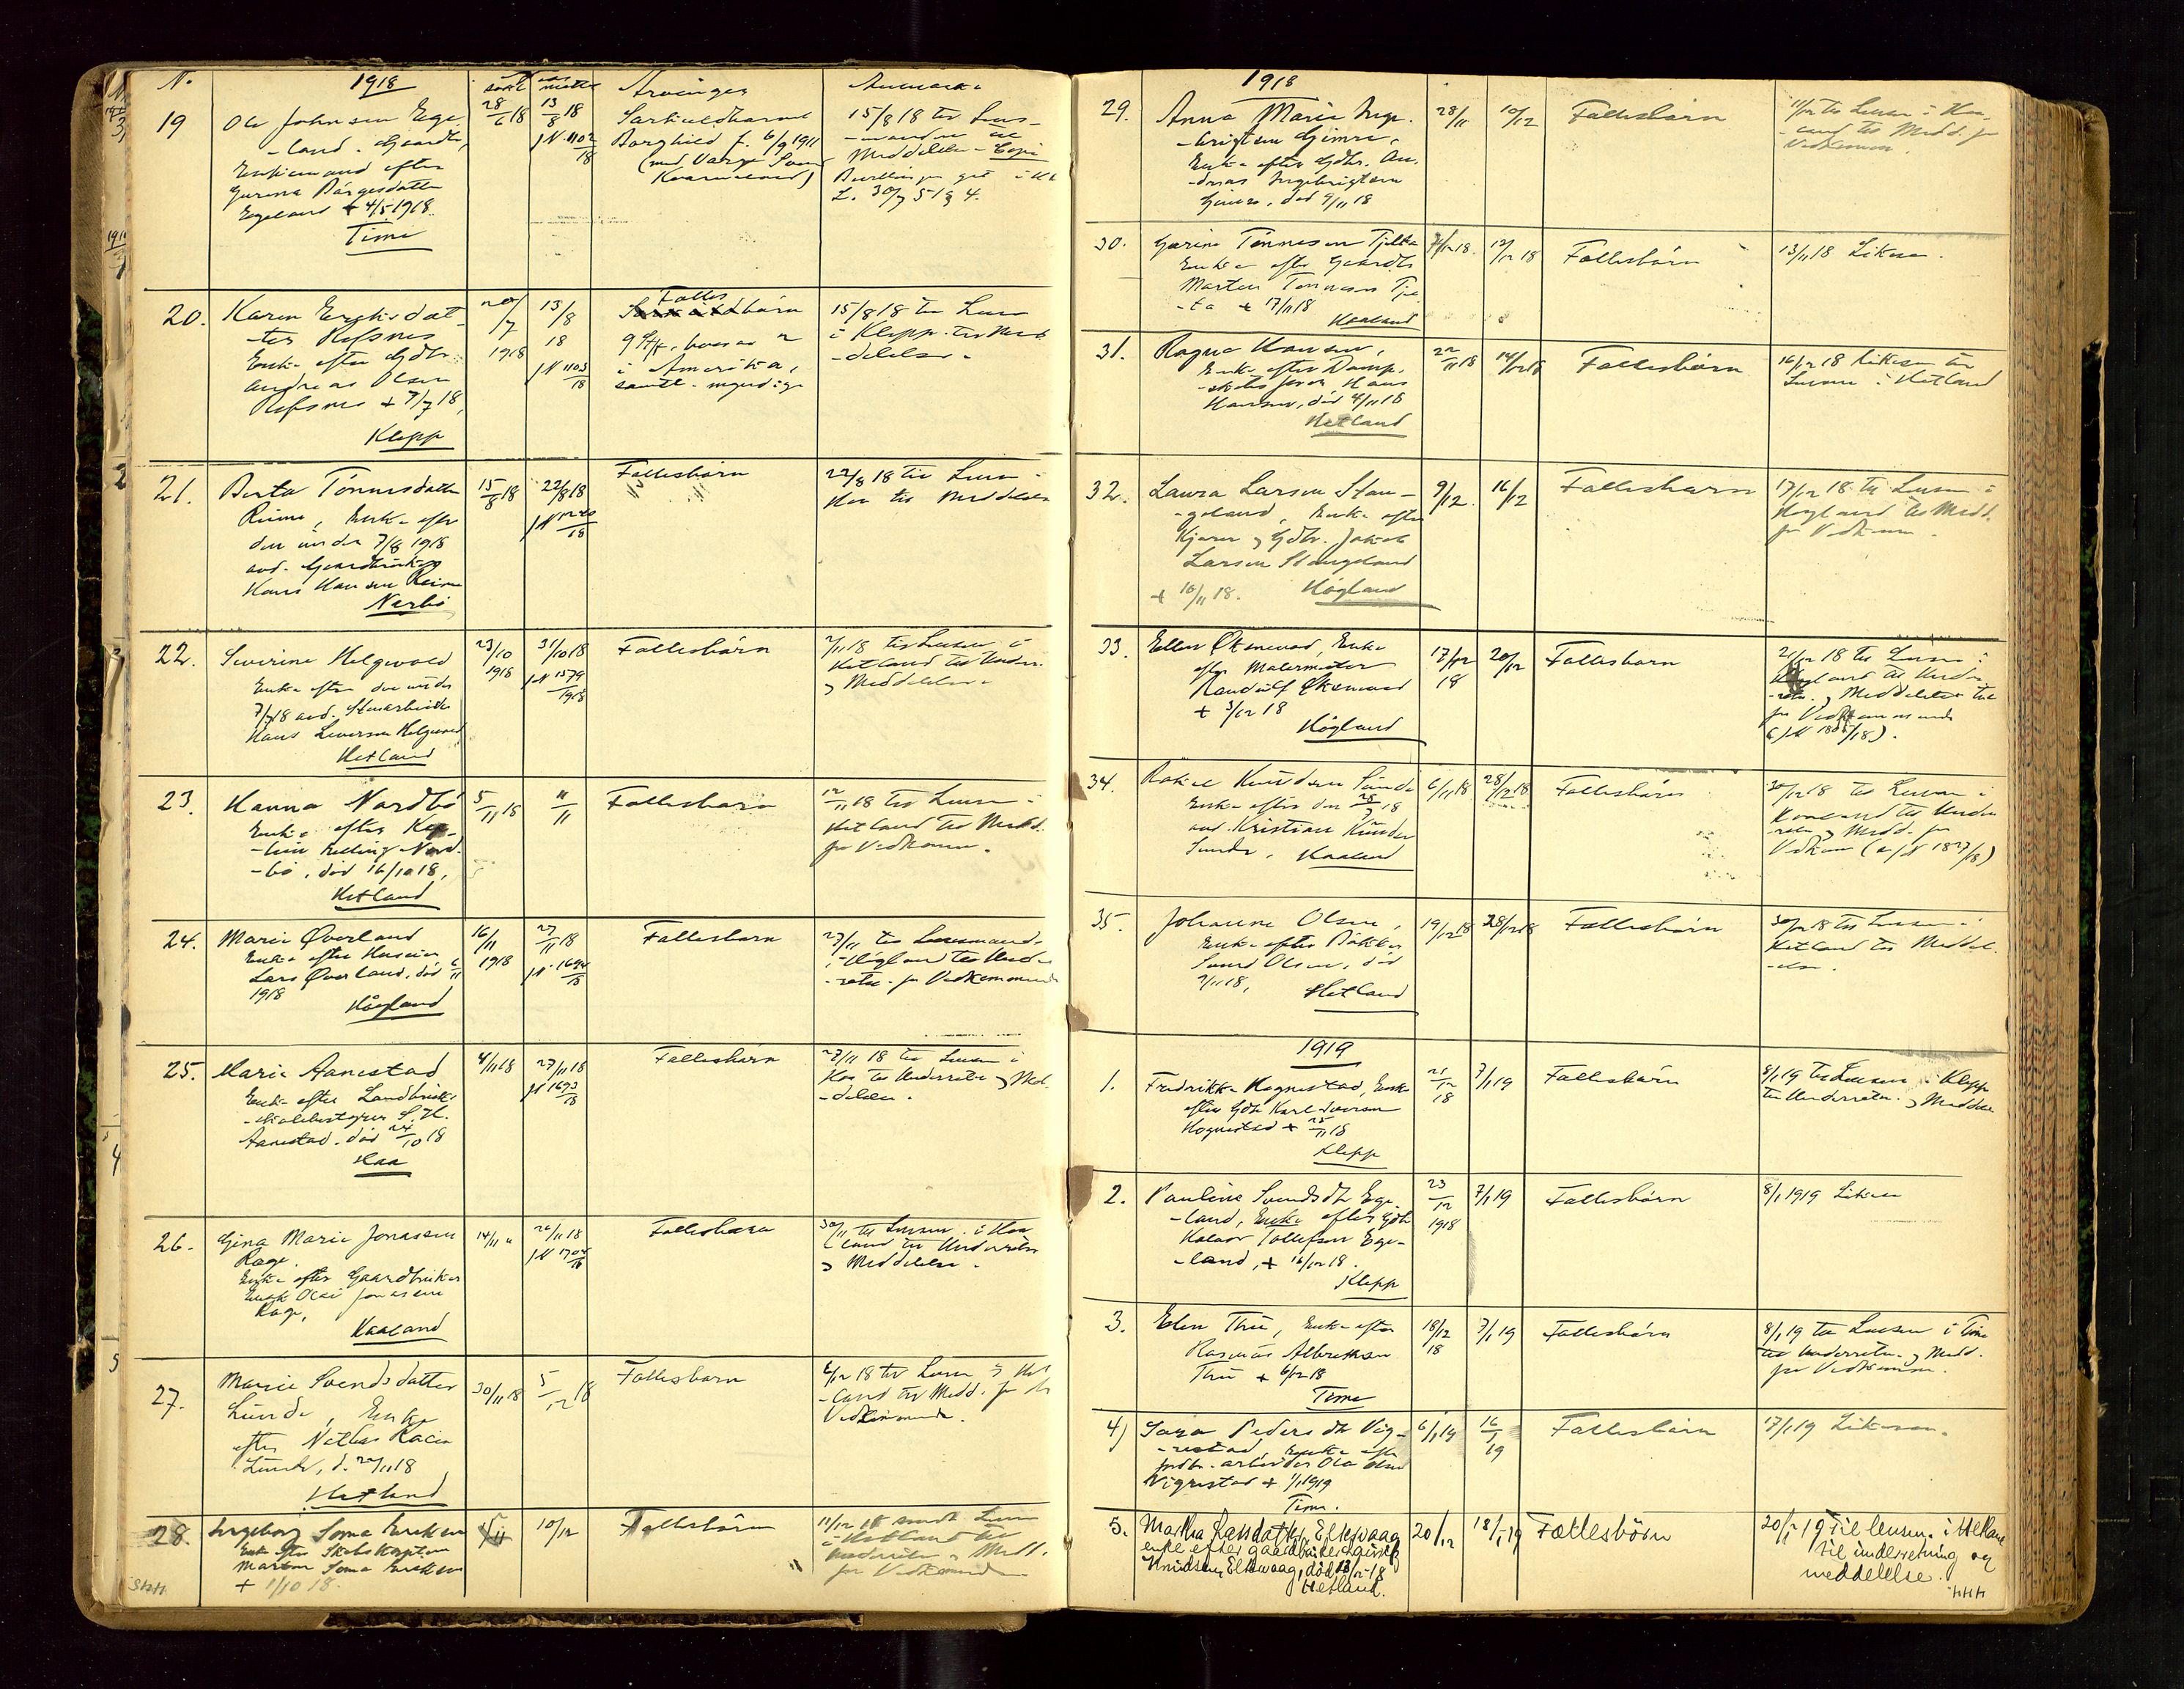 N. 1918 Arvinger
19 Ole Johnsen Ege-
-land. Gaardbr,
Enkemand efter
Gurina Børgesdatter
Egeland + 4/5 1918.
Time
28/6 18
13/8 18
JN 1102/18
Særkuldbarn
Borghild f. 6/9 1911
15/8 18 til Lens-
-manden
L. 30/7 51 § 4.
20. Karen Eriksdat-
-ter Refsnes
Enke efter Gdbr.
Andreas Olsen
Refsnes + 7/7 18,
Klepp
20/7 1918
13/8 18
JN 1103/18
Fælles
børn
i Amerika,
samtl. myndige
15/8 18 til Lensm
i Klepp til Med
-delelse.
21. Berta Tønnesdatter
Reime, Enke efter
den under 7/8 1918
avd. Gaardbruker
Hans Hansen Reime
Nærbø
15/8 18
22/8 18
Fællesbørn
22/8 18 til Lensm i
Haa til Meddelelse
22. Severine Helgevold
Enke efter den under
7/7 18 avd. Stenarbeider
Hans Seversen Helgevold
Hetland
23/10 1918
31/10 18
JN 1579/1918
Fællesbørn
2/11 18 til Lensm i
Hetland til Under.
og Meddelelse.
23. Hanna Nordbø
Enke efter Kap-
-tein Nord-
-bø, død 16/10 18,
Hetland
5/11 18
11/11
Fællesbørn
12/11 18 til Lensm i
Hetland til Medd.
for Vedkomm.
24. Marie Øverland
Enke efter Huseier
Lars Øverland, død 6/11
1918
Høgland
16/11 1918
27/11 18
JN. 1694/18
Fællesbørn
27/11 til Lensmand.
i Høgland til Under
-retn. for Vedkommende
25. Marie Aanestad
Enke efter Landbruks
-skolebestyrer S. H.
Aanestad. død 24/10 18
Haa
4/11 18
27/11 18
JN 1693/18
Fællesbørn
27/11 18 til Lensm i
Haa til Underretn og Med
-delelse.
26. Gina Marie Jonassen
Rage.
Enke efter Gaardbruker
Olai Jonassen
Rage.
Haaland
14/11 "
JN 1704/18
Fællesbørn
30/11 til Lensm. i Haa
-land til Underretn
og Meddelelse.
27. Marie Svendsdatter
Lunde, Enke
efter
Lunde, d. 20/11 18
Hetland
30/11 18
5/12 18
Fællesbørn
6/12 18 til Lensm i Het
-land til Medd. for
Vedkommende.
28. Ingeborg Soma Eriksen
Enke efter Skibskaptein
Soma Eriksen
+ 1/10 18.
10/12
Fællesbørn
11/12 18 sendt Lensm
i Hetland til
underretn og Medd.
for Vedkommende
1918
29. Anna Marie Inge-
-brigtsen Gimre,
Enke efter Gdbr. An-
-dreas Ingebrigtsen
Gimre, død 9/11 18
28/11
10/12
Fællesbørn
11/12 til Lensm i Haa-
-land til Medd. for
Vedkomm.
30. Gurine Tønnesen Tjelta
Enke efter Gaardbr
Marten Tønnesen Tjel
-ta + 17/11 18
Haaland
7/12 18.
12/12 18
Fællesbørn
13/11 18 Likesa.
31. Ragna Hansen,
Enke efter Damp-
Hans
Hansen, død 4/11 18
Hetland
22/11 18
14/12 18
Fællesbørn
16/12 18 Likesa til
Lensm i Hetland
32. Laura Larsen Stan-
-geland, Enke efter
Gdbr. Jakob
Larsen Stangeland
+ 10/11 18. Høgland
9/12.
16/12
Fællesbørn
17/12 18 til Lensm i
Høgland til Medd.
for Vedkomm.
33. Ellen Økenevad, Enke
efter Malermester
Randulf Økenevad
+ 3/12 18
Høgland
17/12 18
20/12
Fællesbørn
21/12 18 til Lensm i
Høgland til Under
-retn. og Meddelelse til
for Vedkommende
34. Rakel Knudsen Sunde
Enke efter den 28/9 18
avd. Kristian Knudsen
Sunde, Haaland
6/11 18
28/12 18
Fællesbørn
30/12 18 til Lensm i
Haaland til Under
-retn og Medd. for
Vedkom (a JN 1827/18)
35. Johanne Olsen,
Enke efter Bakker
Svend Olsen, død
9/11 18, Hetland
19/12 18
28/12 18
Fællesbørn
30/12 18 til Lensm i
Hetland til Meddel-
-else.
1919
1. Fredrikke Hognestad, Enke
efter Gdbr Karl Iversen
Hognestad + 25/11 18
Klepp
21/12 18
7/1 19
Fællesbørn
8/1 19 til Lensm. i Klepp
til Underretn. og Meddel
2. Pauline Svendsdtr Ege
-land, Enke efter Gdbr
Halvor Tollefsen Ege-
-land, + 16/12 18.
Klepp
23/12 1918
7/1 19
Fællesbørn
8/1 1919 Likesa
3. Elen Thu, Enke efter
Rasmus Albretsen
Thu + 6/12 18
Time
18/12 18
7/1 19
Fællesbørn
8/1 19 til Lensm i Time
til Underretn. og Medd.
for Vedkomm.
4) Sara Pedersdtr Vig-
-restad, Enke efter
arbeider Ola Olsen
Vigrestad + 1/1 1919
Time.
6/1 19
16/1 19
Fællesbørn
17/1 19 Likesaa.
5. Martha Larsdatter, Eltervaag
enke efter gaardbruker
Knudsen Eltervaag, død 13/12-18
Hetland.
20/12
18/1-19
Fællesbörn
20/1-19 til lensm. i Hetland
til underretning og
meddelelse.